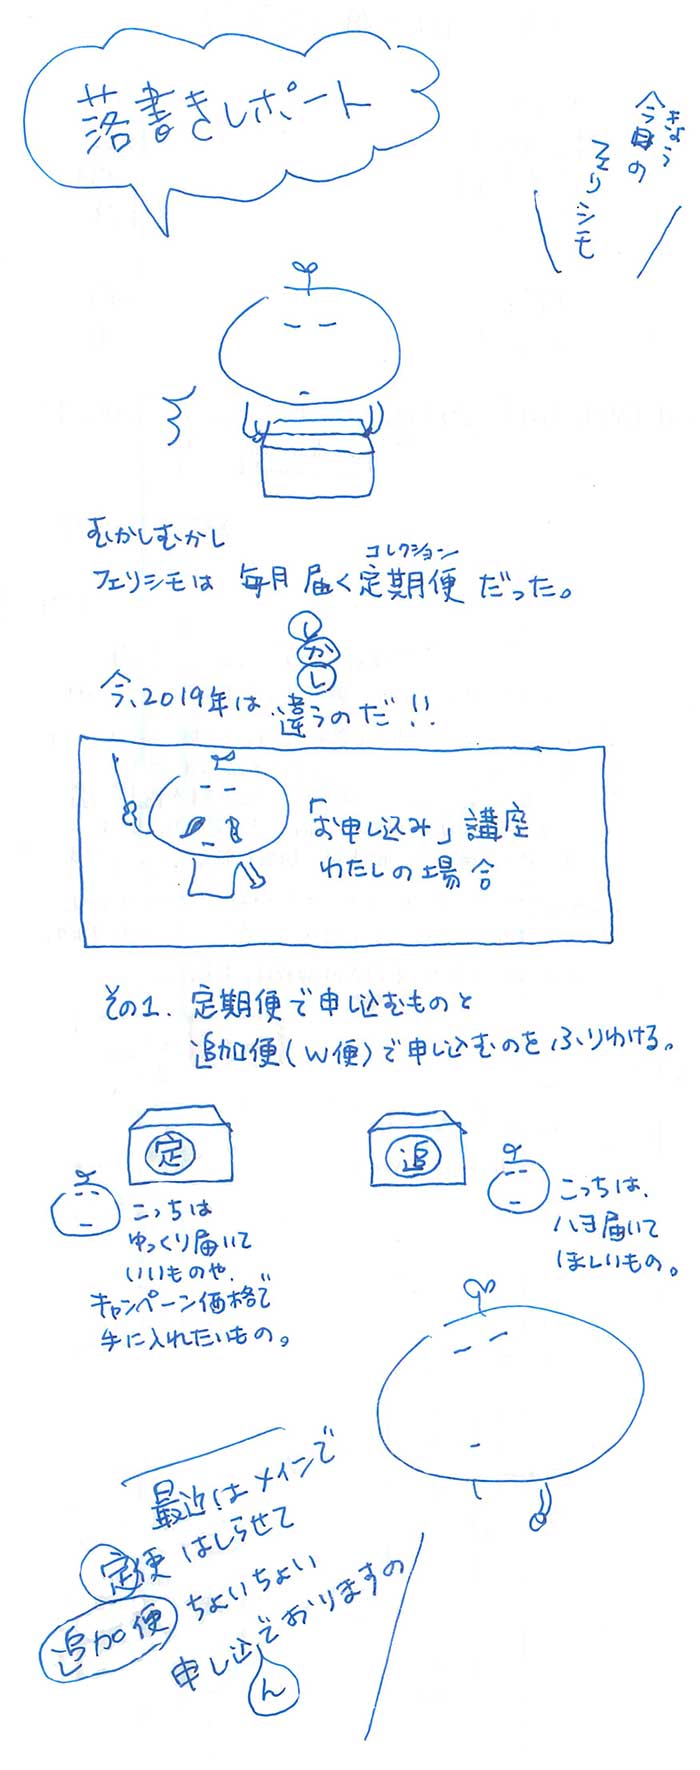 落書きレポート
きょう
今日の
フェリシモ
むかしむかし
コレクション
フェリシモは 毎月 届く定期便 だった。
しかし
今、2019年は 違うのだ!!
「お申し込み」講座
わたしの場合
その1. 定期便で申し込むものと
追加便(W便)で申し込むのをふりわける。
定
こっちは
ゆっくり届いて
いいものや、
キャンペーン価格で
手に入れたいもの。
追
こっちは、
ハヨ届いて
ほしいもの。
最近はメインで
定便 はしらせて
追加便 ちょいちょい
申し込んでおりますの